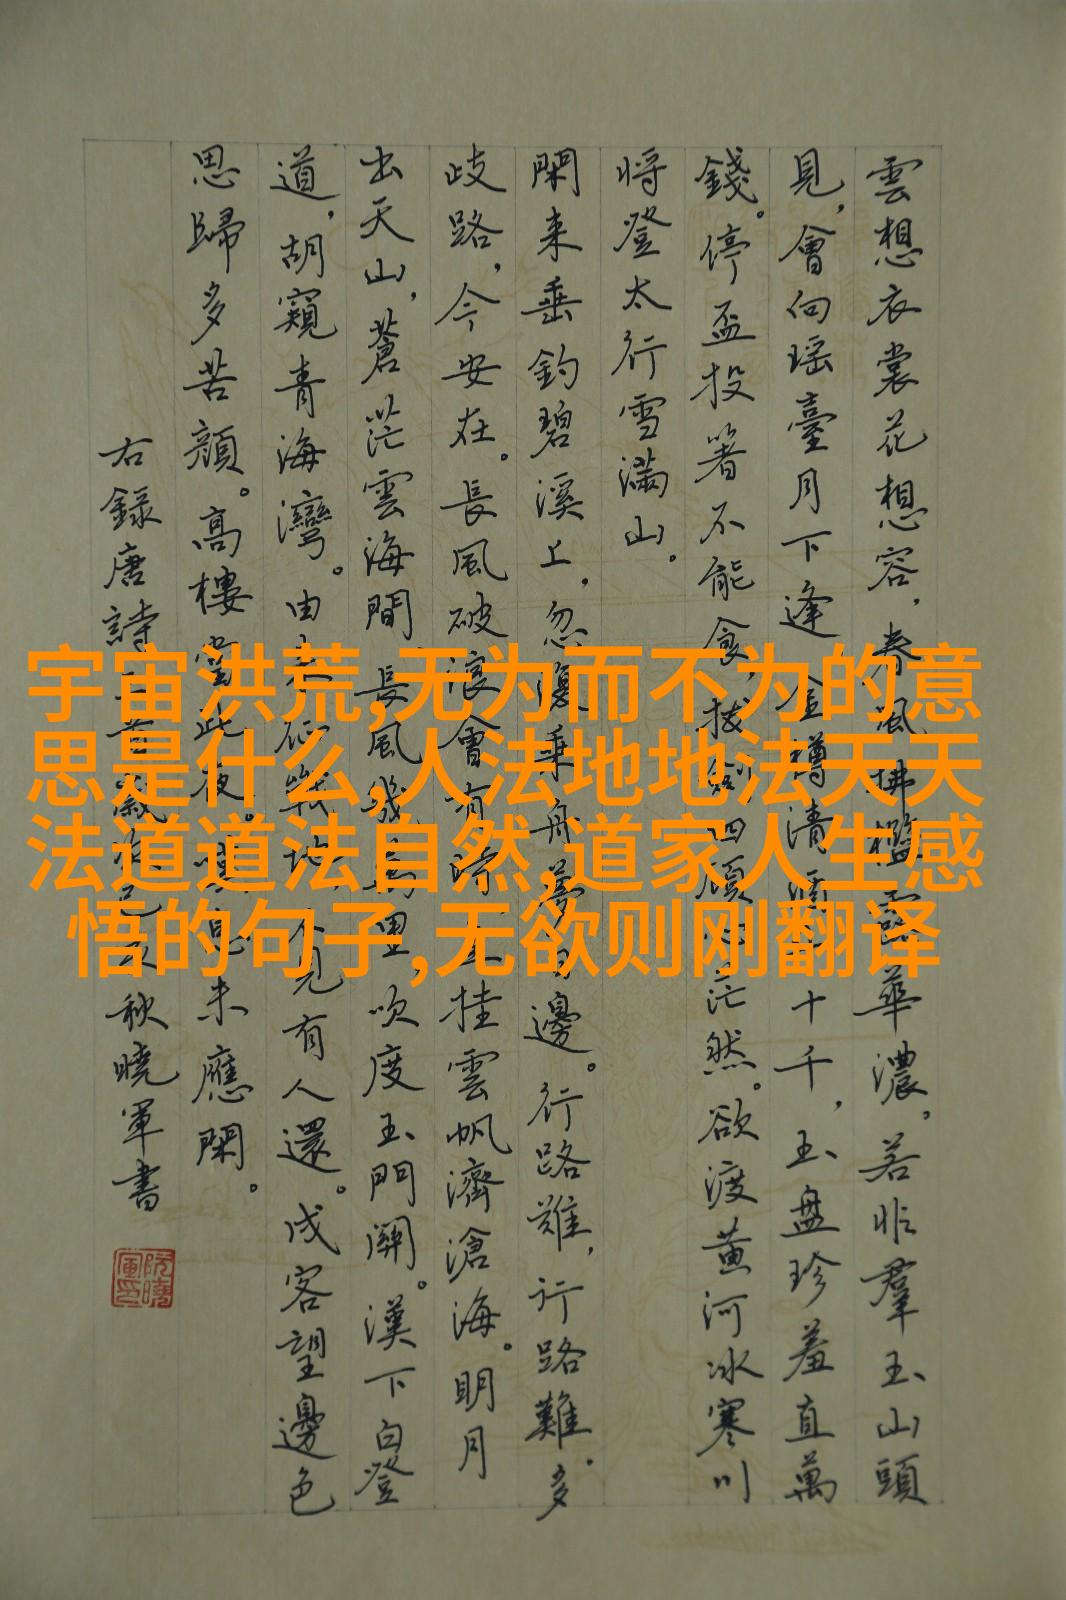 宇宙洪荒,无为而不为的意
思是什么,人法地地法天天
法道道法自然,道家人生感
悟的句子,无欲则刚翻译
雲想衣裳花想容，春風拂檻露華濃，若非羣玉山頭
見，會向瑶臺月下逢 金樽清酒 十千，玉盤珍羞直萬
錢。停盃投箸不能食，拔劍四顧心茫然。欲渡黄河冰寒川
將登太行雪滿山。
閑来垂釣碧溪上，忽復乘舟夢日邊。行路難，行路難。多
歧路，今安在。長風破浪會有時 直挂雲帆濟滄海。明月
出天山，蒼茫雲海間 長風幾萬里，吹度玉門關。漢下白登
道，胡窺青海灣。由来征戰地 不見有人還。戍客望邊色
思歸多苦顔。高樓當此夜 嘆息未應閑。
右録唐詩三首歲在己亥秋曉軍書
阮曉軍印